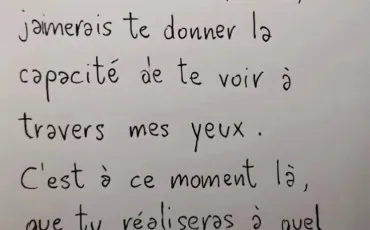 jaimerais te donner la
capacité de te voir à
travers mes yeux.
C'est à ce moment là,
que tu réaliseras à quel